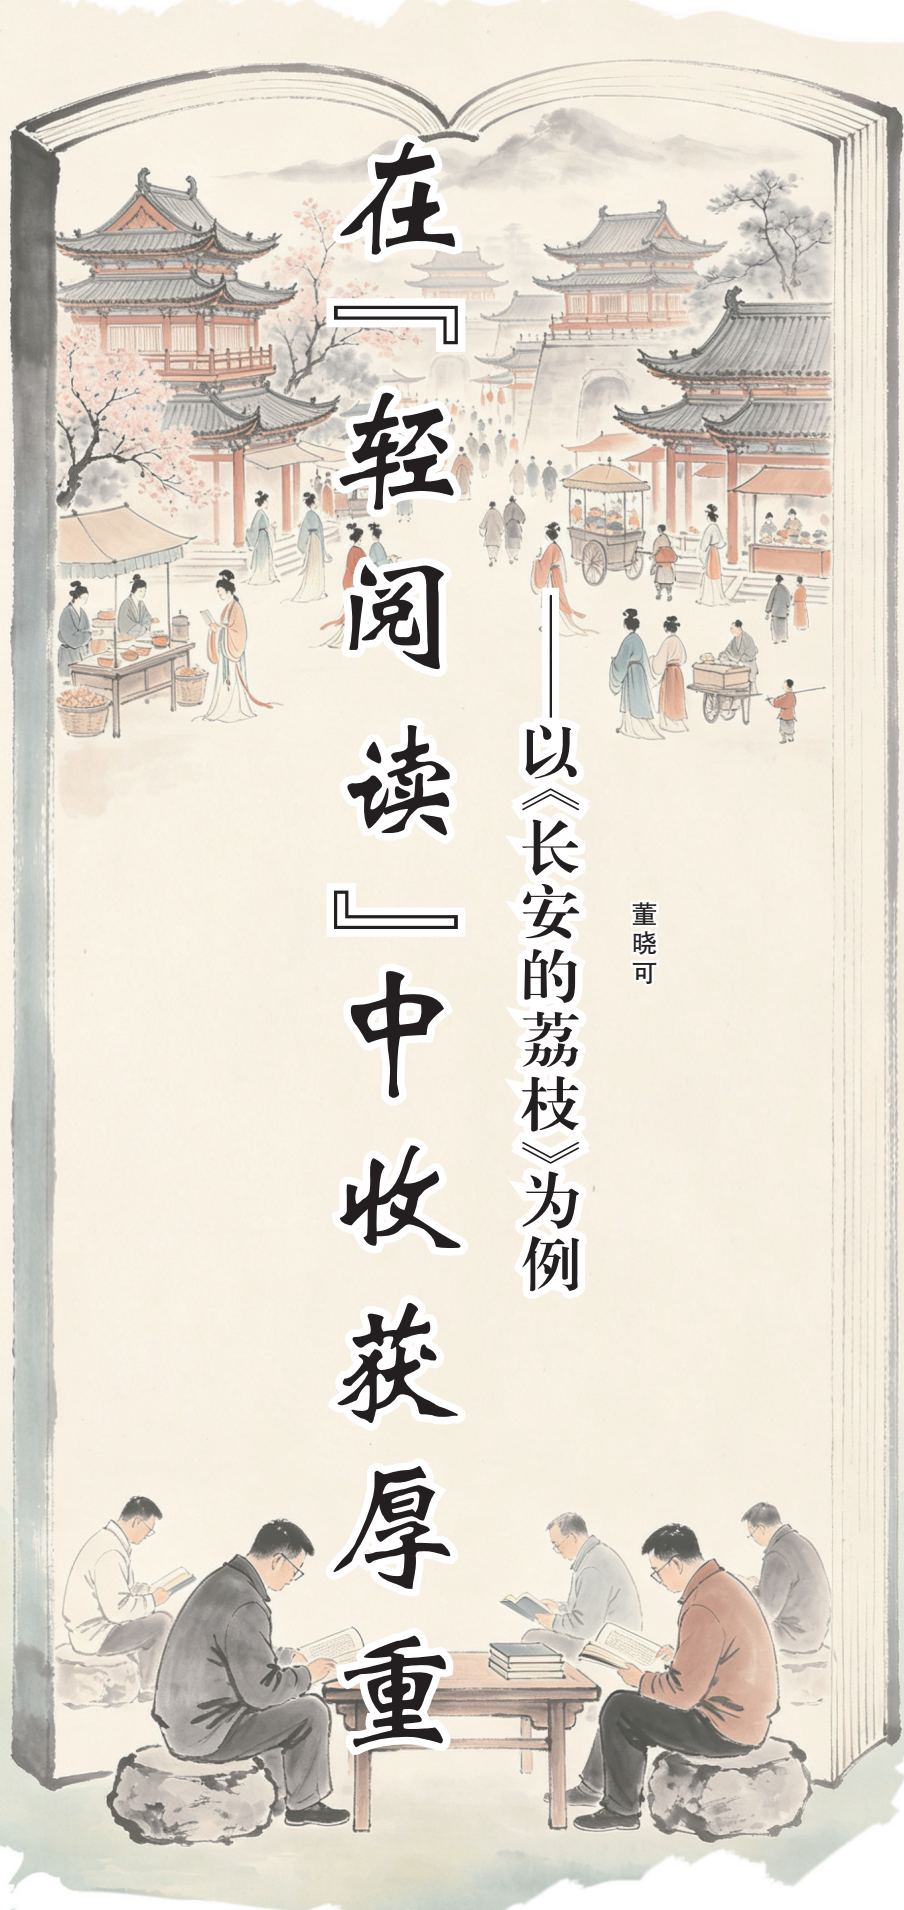 在『轻阅读』中收获厚重
——以《长安的荔枝》为例
董晓可